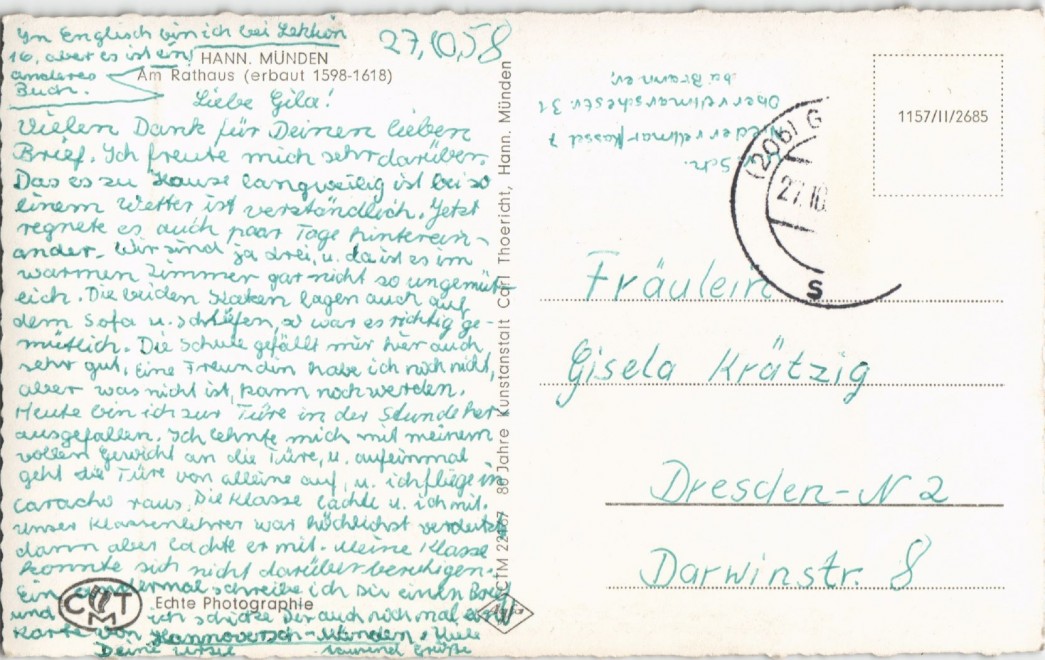 Im Englisch bin ich bei Lektion
16, aber es ist ein
anderes
Buch.
27.10.58
HANN. MÜNDEN
Am Rathaus (erbaut 1598-1618)
Liebe Gila!
Vielen Dank für Deinen lieben
Brief. Ich freute mich sehr darüber.
Das es zu Hause langweilig ist bei so
einem Wetter ist verständlich. Jetzt
regnete es auch paar Tage hinterein-
ander. Wir sind ja drei, u. da ist es im
warmen Zimmer gar nicht so ungemüt-
lich. Die beiden Katzen lagen auch auf
dem Sofa u. schliefen, so war es richtig ge-
mütlich. Die Schule gefällt mir hier auch
sehr gut, eine Freundin habe ich noch nicht,
aber was nicht ist, kann noch werden.
Heute bin ich zur Türe in der Stunde her-
ausgefallen. Ich lehnte mich mit meinem
vollen Gewicht an die Türe, u. aufeinmal
geht die Türe von alleine auf, u. ich fliege in
caracho raus. Die Klasse lachte u. ich mit.
Unser Klassenlehrer war höchlichst verdutzt
dann aber lachte er mit. Meine Klasse
konnte sich nicht darüber beruhigen.
Ein andermal schreibe ich Dir einen Brief
und ich schicke Dir auch noch mal
Karte von Hannoversch-Münden. Viele
Deine Ursel tausend Grüße
CTM
Echte Photographie
Agfa
CTM 22467 80 Jahre Kunstanstalt Carl Thoericht, Hann. Münden
Sch.
Niedervellmar/Kassel 7
Obervellmarschestr. 31
(20b) G
27.10.
s
1157/II/2685
Fräulein
Gisela Krätzig
Dresden-N 2
Darwinstr. 8